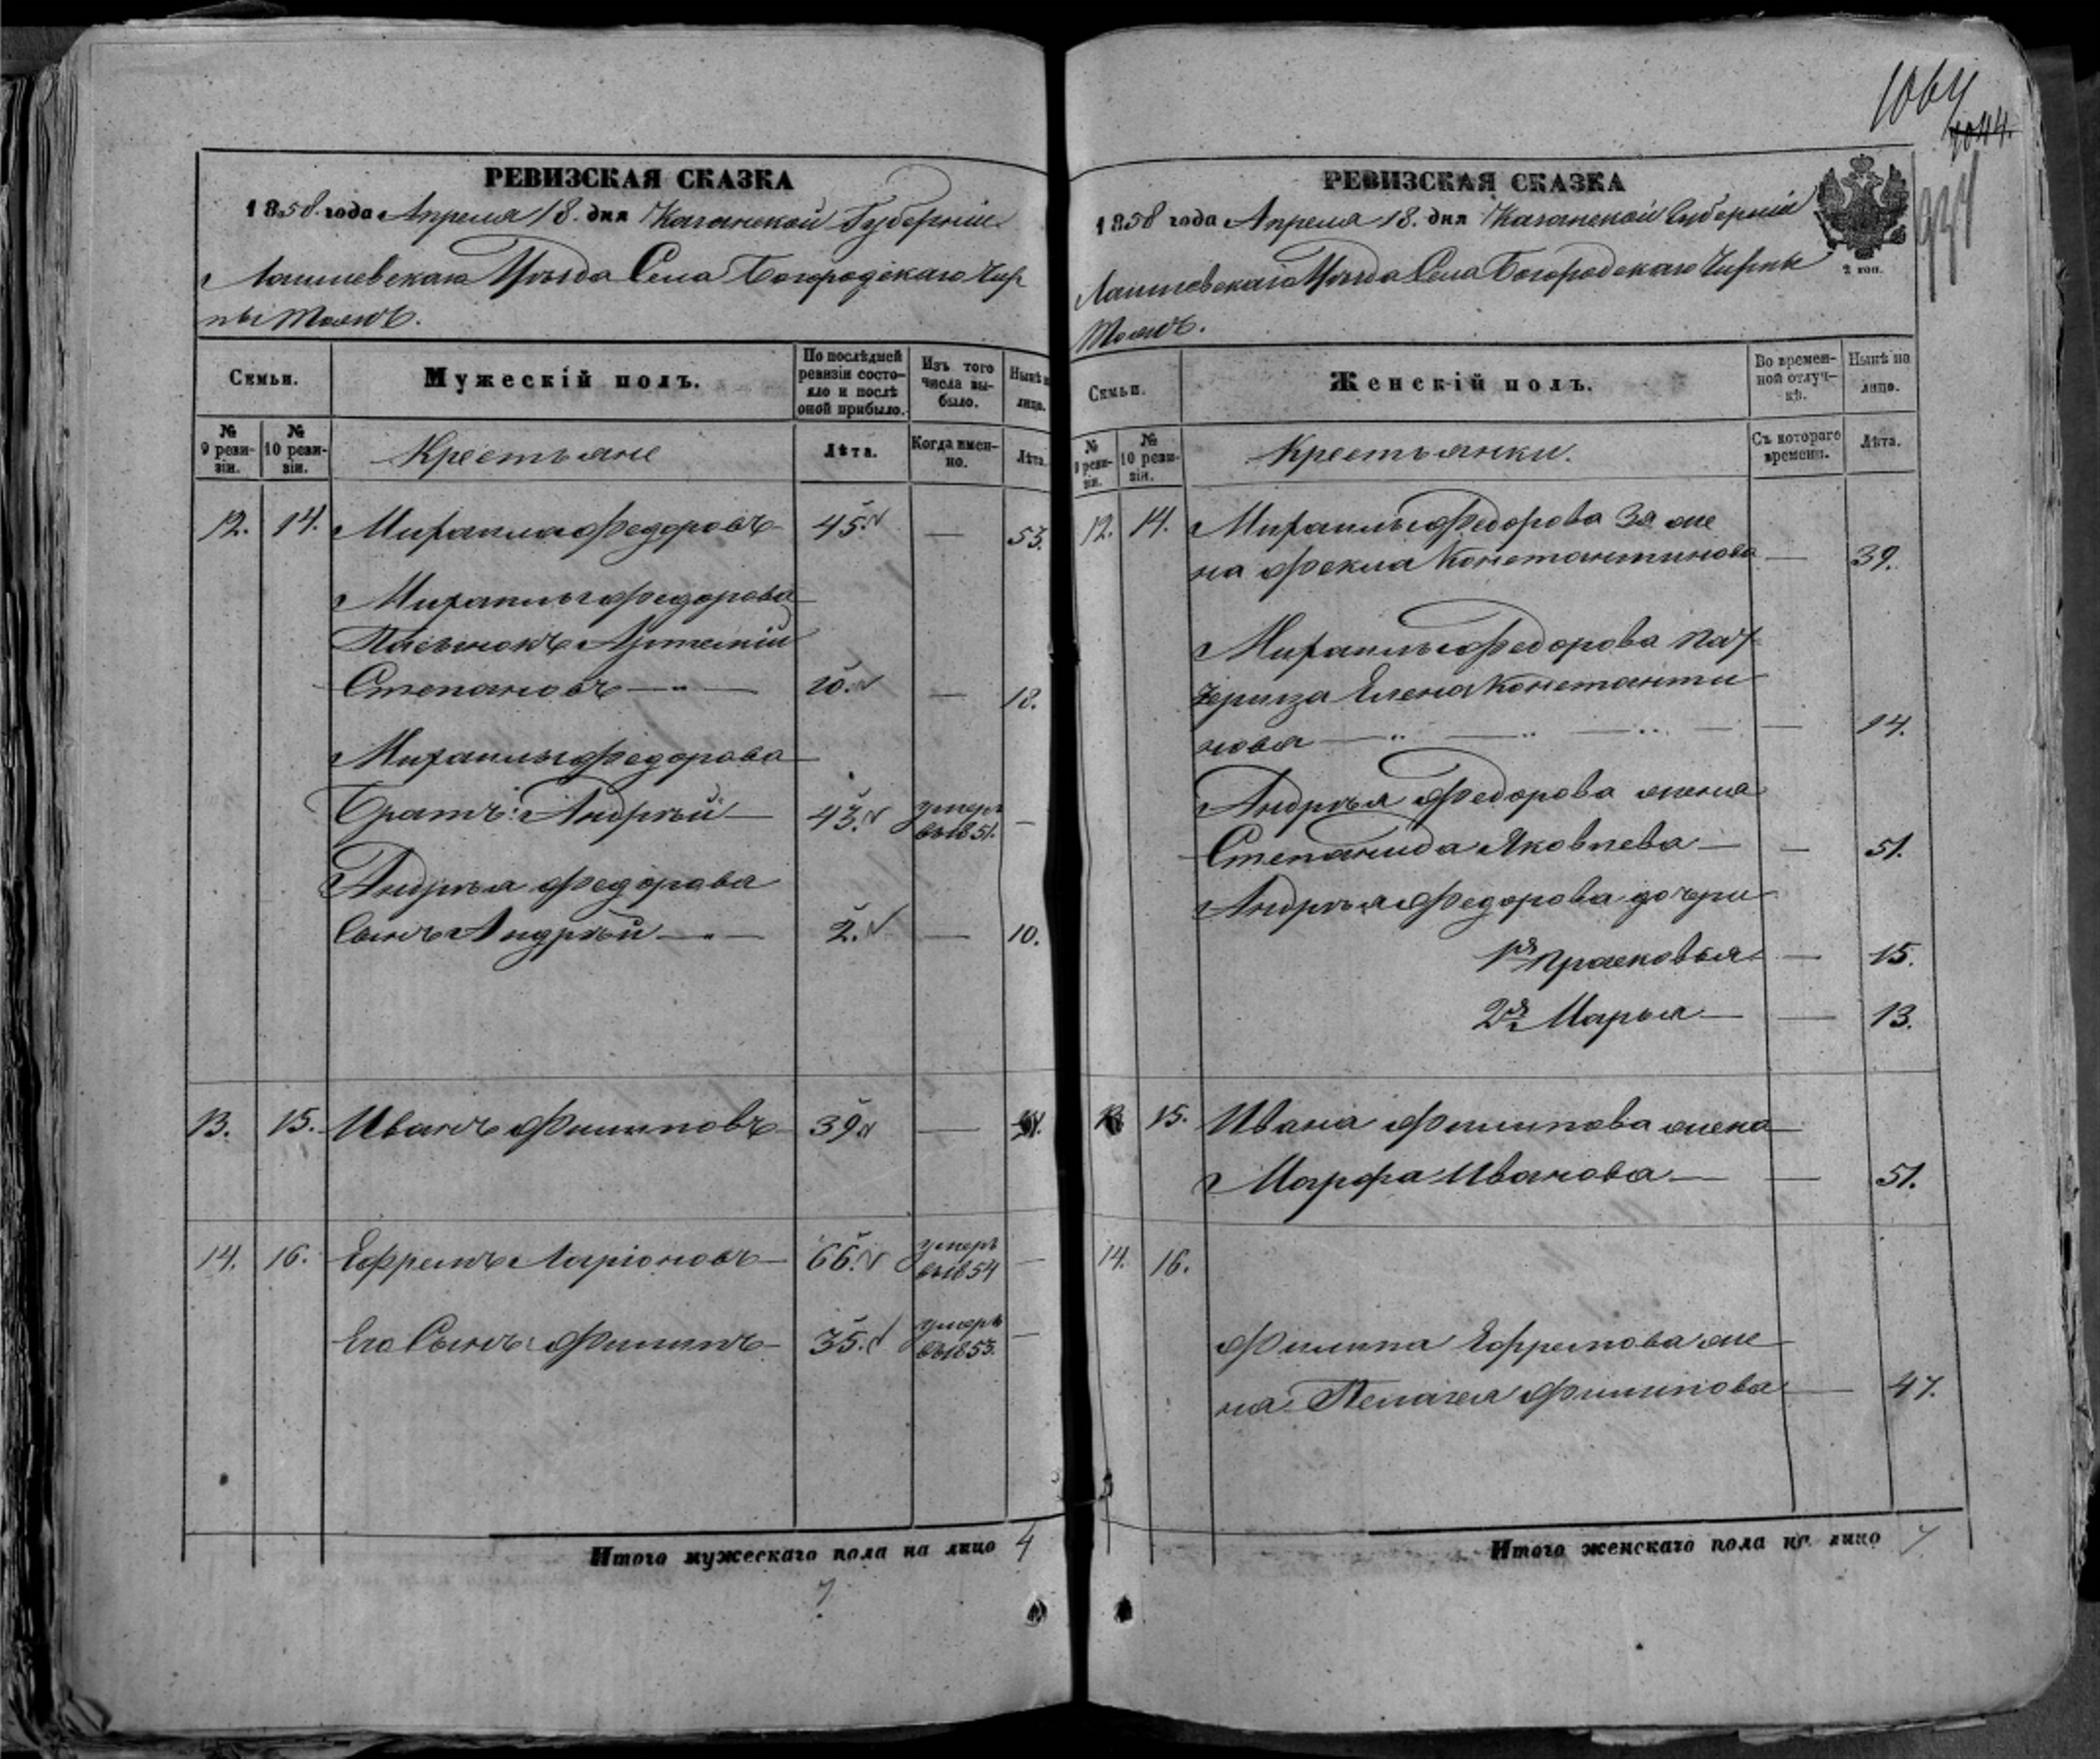 1064
1044.
934
РЕВИЗСКАЯ СКАЗКА
1858 года Апреля 18. дня Казанской Губерніи
Лаишевскаго Уѣзда Села Богородскаго Чир
пы тожъ.
Семьи.
Мужескій полъ.
По послѣдней ревизіи состояло и послѣ оной прибыло.
Изъ того числа выбыло.
Нынѣ на лицо.
№ 9 ревизіи.
№ 10 ревизіи.
Крестьяне
Лѣта.
Когда именно.
Лѣта.
12. 14. Михаила Федоровъ 45. — 53.
Михаилы Федорова
Пасынокъ Артемій
Степановъ — 10. — 18.
Михаилы Федорова
Братъ: Андрѣй — 43. умеръ въ 1851. —
Андрѣя Федорова
Сынъ Андрѣй — 2. — 10.
13. 15. Иванъ Филиповъ 39 —
14. 16. Ефремъ Ларіоновъ — 66. умеръ въ 1854 —
Его Сынъ: Филипъ — 35. умеръ въ 1853. —
Итого мужескаго пола на лицо 4
7.
РЕВИЗСКАЯ СКАЗКА
1858 года Апреля 18. дня Казанской Губерніи
2 коп.
Лаишевскаго Уѣзда Села Богородскаго Чирпы
тожъ.
Семьи.
Женскій полъ.
Во временной отлучкѣ.
Нынѣ на лицо.
№ 9 ревизіи.
№ 10 ревизіи.
Крестьянки.
Съ котораго времени.
Лѣта.
12. 14. Михаилы Федорова 2я же
на Фекла Константинова — 39.
Михаилы Федорова пат
черица Елена Константи
нова — 14.
Андрѣя Федорова жена
Степанида Яковлева — 51.
Андрѣя Федорова дочери
1я Прасковья — 15.
2я Марья — 13.
13 15. Ивана Филипова жена
Марфа Иванова — 51.
14. 16.
Филипа Ефремова же
на Пелагея Филипова — 47.
Итого женскаго пола на лицо 7